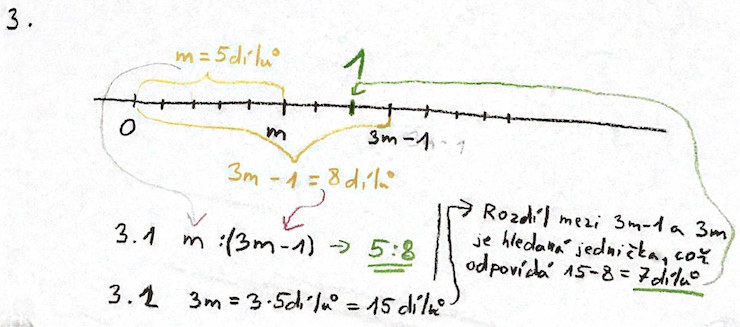 3.
m = 5 dílů
1
0 m 3m-1
3m - 1 = 8 dílů
3.1 m : (3m-1) → 5:8
3.2 3m = 3·5 dílů = 15 dílů
→ Rozdíl mezi 3m-1 a 3m
je hledaná jednička, což
odpovídá 15-8 = 7 dílů